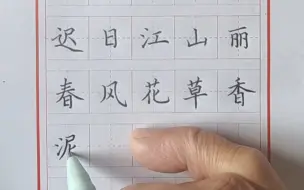 迟日江山丽
春风花草香
泥